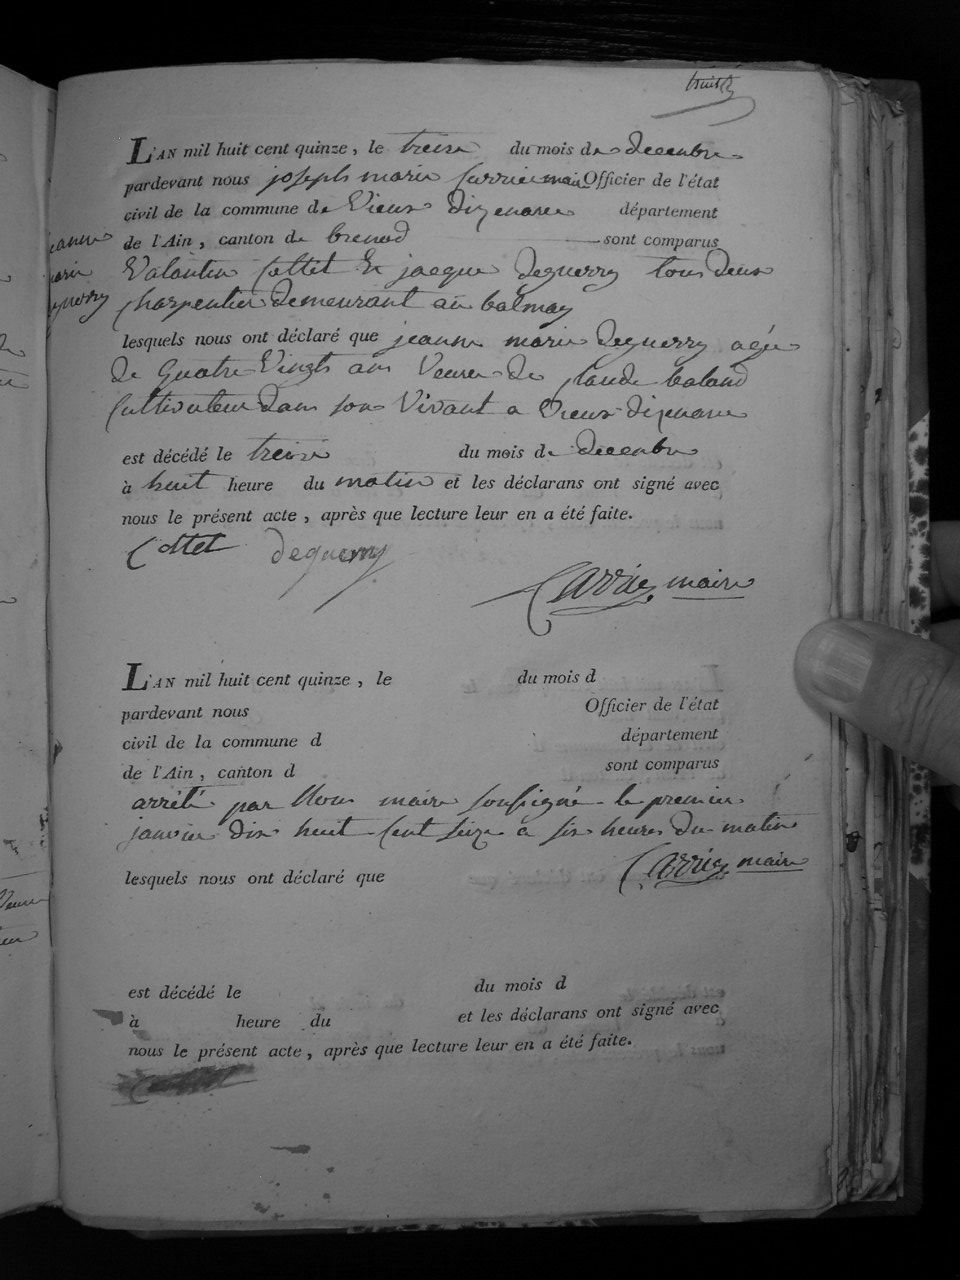 huit
L'AN mil huit cent quinze, le treize du mois de decembre
pardevant nous joseph marie Carrier maire Officier de l'état
civil de la commune de Vieux dizenave département
de l'Ain, canton de brenod sont comparus
jeanne
marie
deguerry
Valantin Cottet Et jacque deguerry tous deux
charpentier demeurant au balmay
lesquels nous ont déclaré que jeanne marie deguerry agée
de Quatre Vingts ans Veuve de claude baland
Cultivateur dans son Vivant a Vieux dizenave
est décédé le treize du mois de decembre
à huit heure du matin et les déclarans ont signé avec
nous le présent acte, après que lecture leur en a été faite.
Cottet deguerry
Carrier maire
L'AN mil huit cent quinze, le du mois d
pardevant nous Officier de l'état
civil de la commune d département
de l'Ain, canton d sont comparus
arrêté par Nous maire soussigné le premier
janvier dix huit Cent seize a six heures du matin
Carrier maire
lesquels nous ont déclaré que
est décédé le du mois d
à heure du et les déclarans ont signé avec
nous le présent acte, après que lecture leur en a été faite.